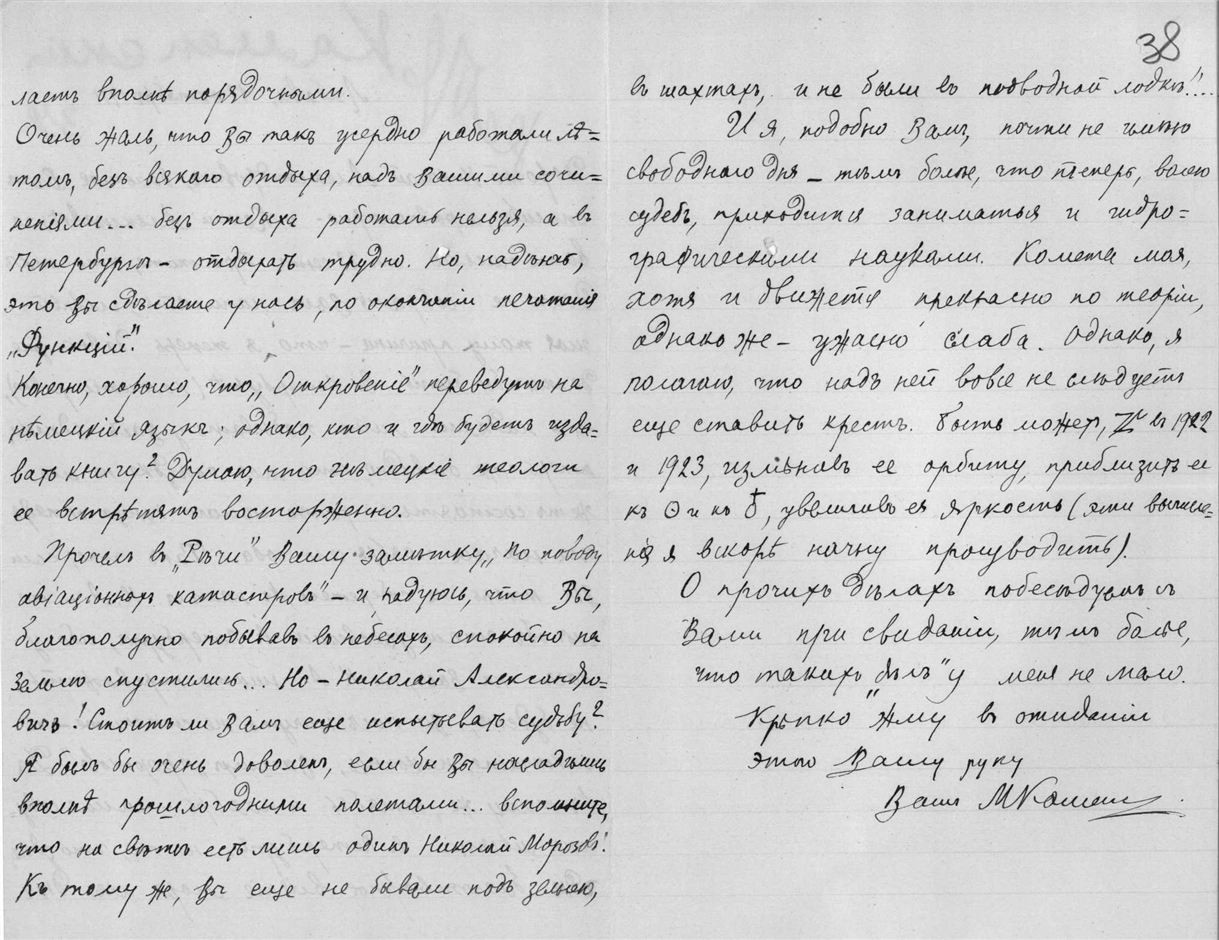 лаетъ вполнѣ порядочными.
Очень жаль, что Вы такъ усердно работали лѣ=
томъ, безъ всякаго отдыха, надъ Вашими сочи=
неніями... безъ отдыха работать нельзя, а въ
Петербургѣ – отдыхать трудно. Но, надѣюсь,
это Вы сдѣлаете у насъ, по окончаніи печатанія
„Функцій".
Конечно, хорошо, что „Откровеніе" переведутъ на
нѣмецкій языкъ; однако, кто и гдѣ будетъ изда=
вать книгу? Думаю, что нѣмецкіе теологи
ее встрѣтятъ восторженно.
Прочелъ в „Рѣчи" Вашу замѣтку „По поводу
авіаціонныхъ катастрофъ" – и радуюсь, что Вы,
благополучно побывавъ въ небесахъ, спокойно на
землю спустились... Но – Николай Александро=
вичъ! Стоитъ ли Вамъ еще испытывать судьбу?
Я былъ бы очень доволенъ, если бы Вы насладились
вполнѣ прошлогодними полетами... вспомните,
что на свѣтѣ есть лишь одинъ Николай Морозовъ!
Къ тому же, Вы еще не бывали подъ землею,
38
въ шахтахъ, и не были въ подводной лодкѣ!!...
И я, подобно Вамъ, почти не имѣю
свободнаго дня – тѣмъ болѣе, что теперь, волею
судебъ, приходится заниматься и гидро=
графическими науками. Комета моя,
хотя и движется прекрасно по теоріи,
однако же – ужасно слаба. Однако, я
полагаю, что надъ ней вовсе не слѣдуетъ
еще ставить крестъ. Быть можетъ, ♃ въ 1922
и 1923, измѣнивъ ее орбиту, приблизитъ ее
къ ☉ и къ ♁, увеличивъ ея яркость (эти вычисле=
нія я вскорѣ начну производить).
О прочихъ дѣлахъ побесѣдуемъ съ
Вами при свиданіи, тѣмъ болѣе,
что такихъ „дѣлъ" у меня не мало.
Крѣпко жму въ ожиданіи
этого Вашу руку
Вашъ МКамен